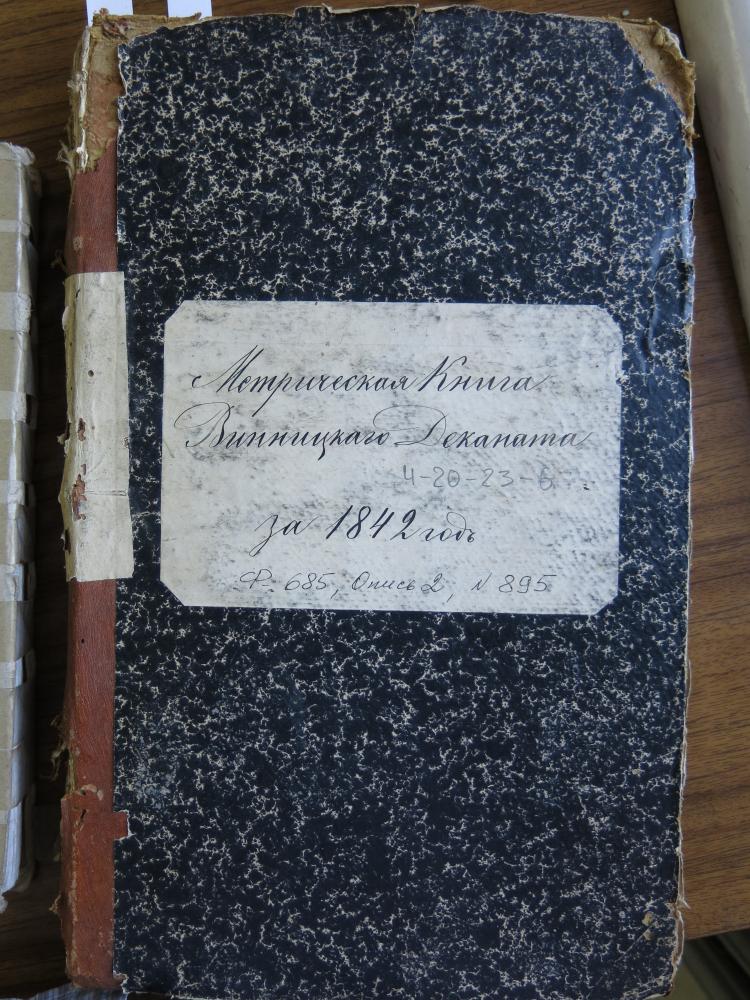 Метрическая Книга
Винницкаго Деканата
4-20-23-6
за 1842 годъ
Ф. 685, Опись 2, N 895